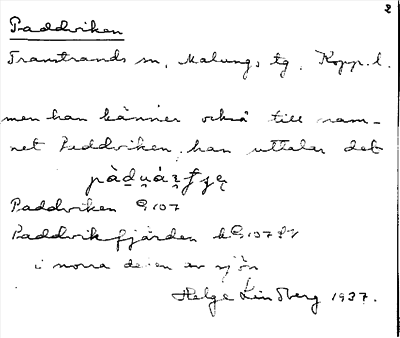 2
Paddviken
Transtrands sn, Malungs tg. Kopp. l.
men han känner också till nam-
net Peddviken, han uttalar det
Paddviken
Paddvikfjärden
i norra delen av sjön
Helge Lindberg 1937.